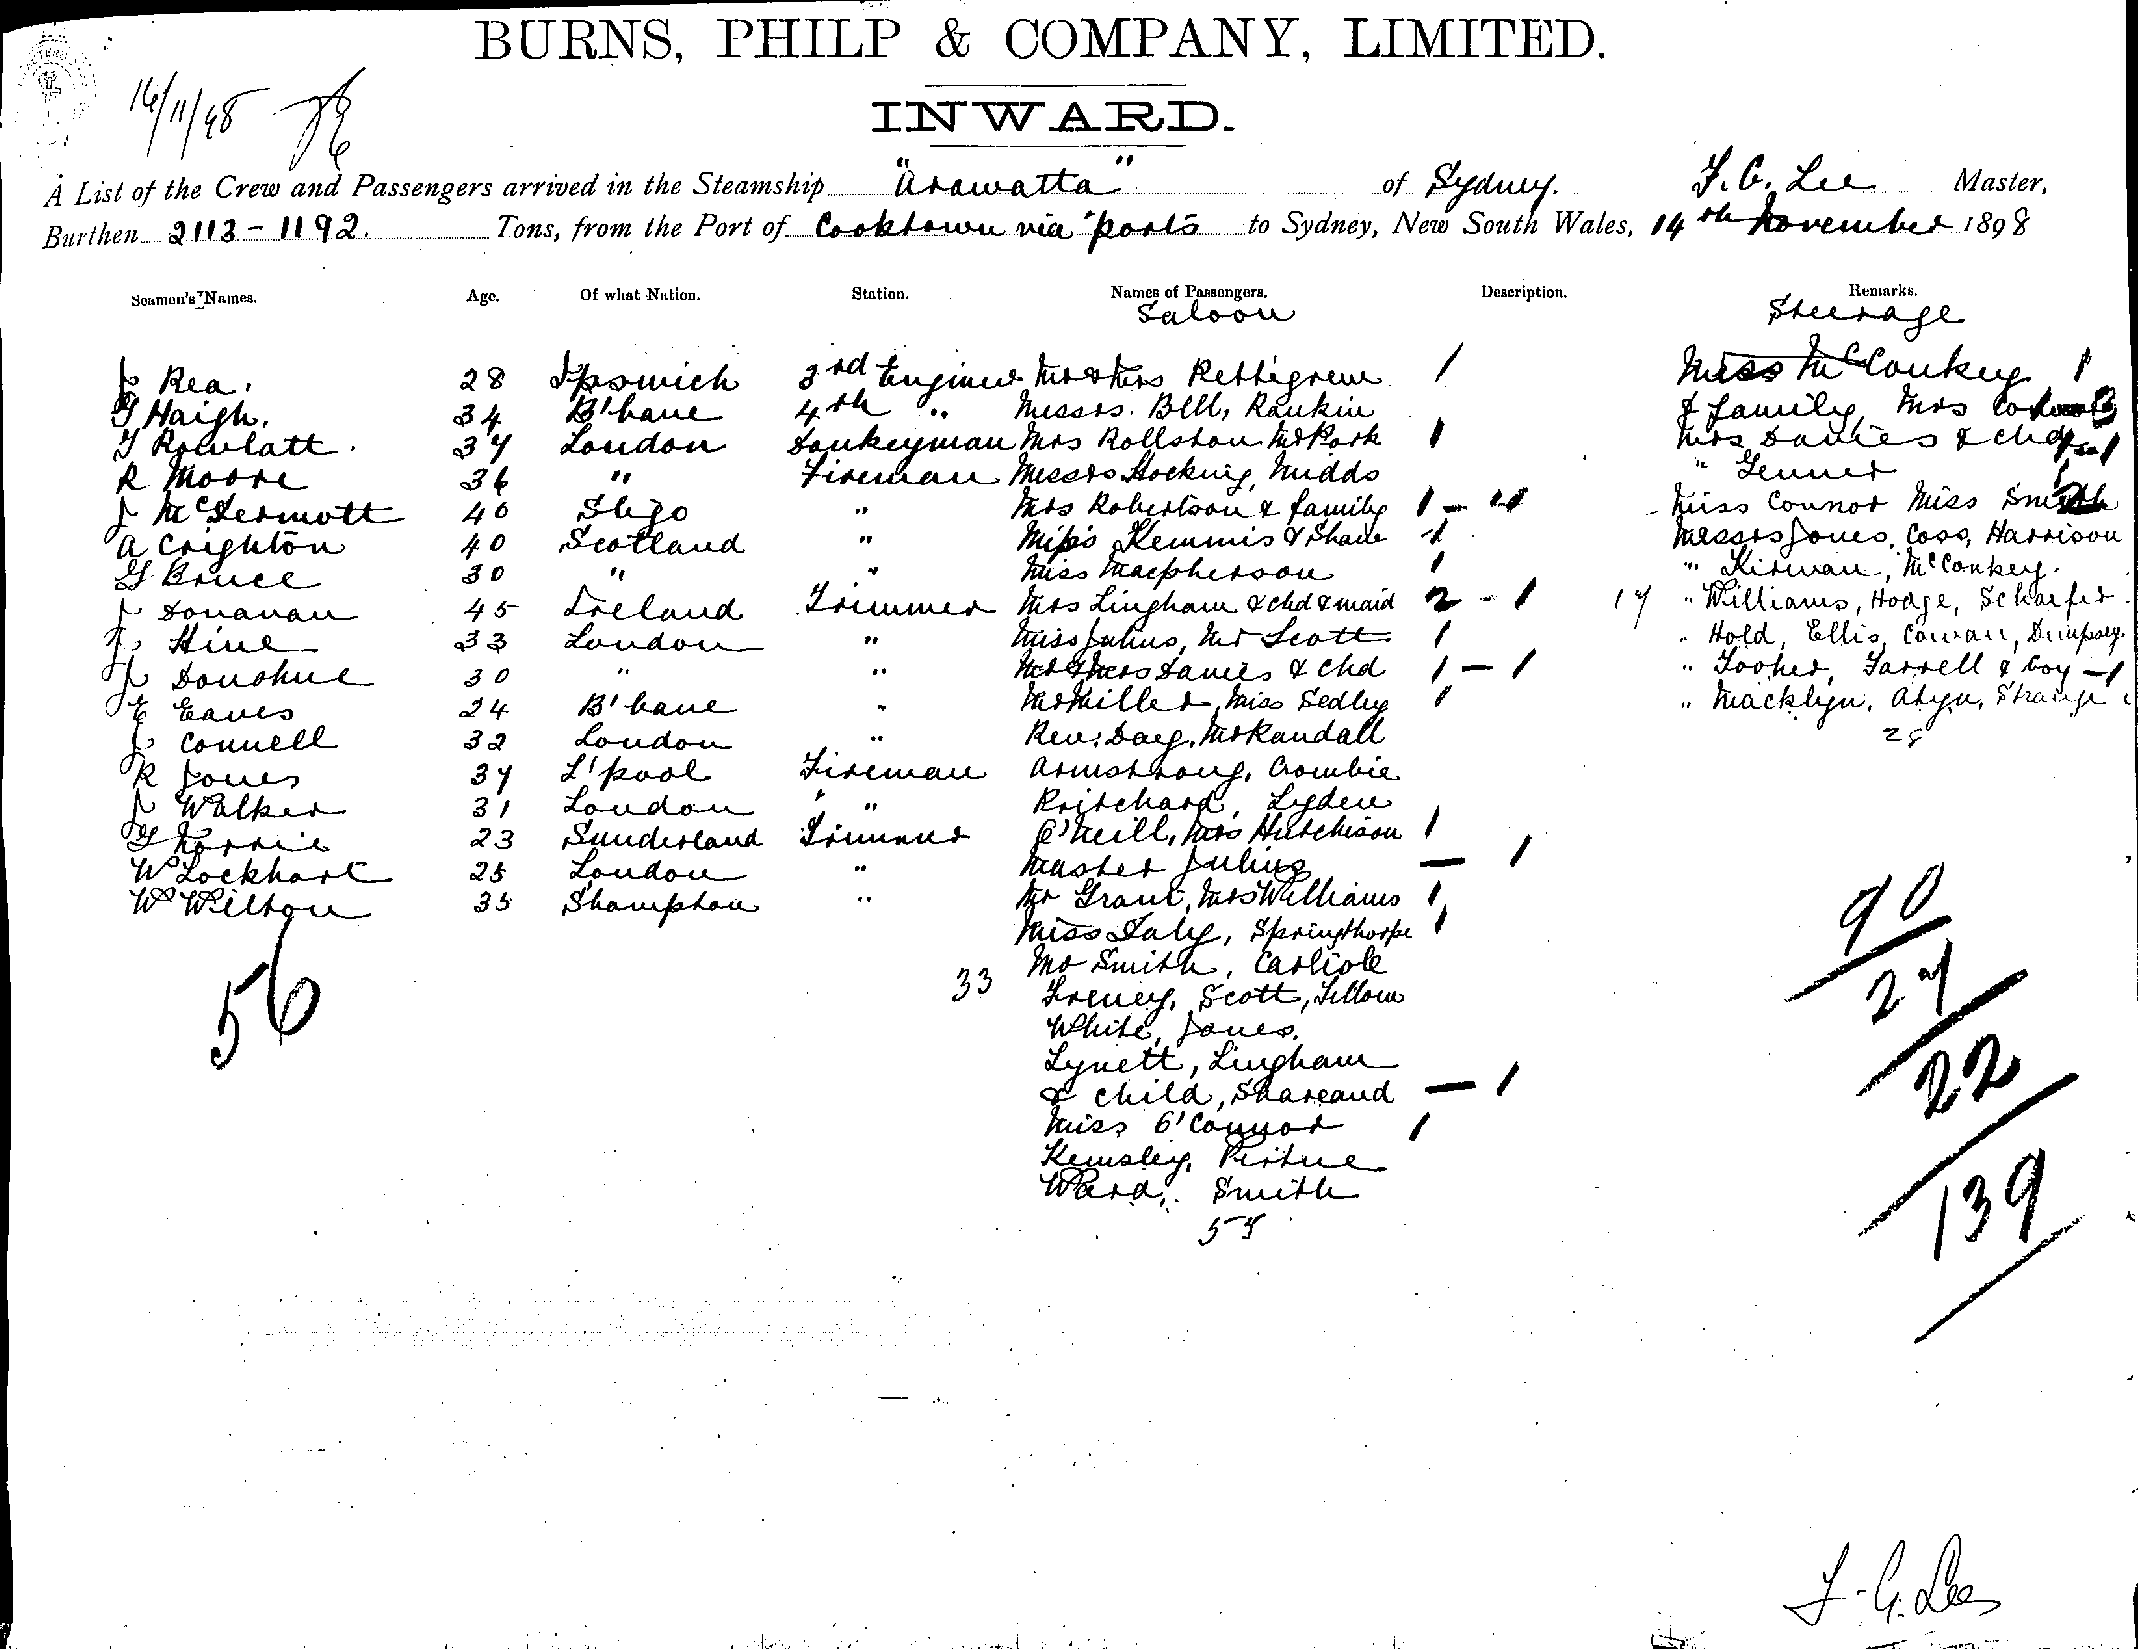 BURNS, PHILP & COMPANY, LIMITED.
16/11/98
INWARD.
A List of the Crew and Passengers arrived in the Steamship "Arawatta" of Sydney. F. G. Lee Master,
Burthen 2113 - 1192. Tons, from the Port of Cooktown via ports to Sydney, New South Wales, 14th November 1898
Seamen's Names. Age. Of what Nation. Station. Names of Passengers. Description. Remarks.
Saloon Steerage
J Rea. 28 Ipswich 3rd Engineer Mr & Mrs Pettigrew 1 Miss McConkey 1
G Haigh. 34 B'bane 4th " Messrs. Bell, Rankin & family, Mrs
J Rowlatt. 37 London Donkeyman Mrs Rollston Mr Park 1 Mrs Davies & chd
R Moore 36 " Fireman Messrs Hocking, Mudds " Jenner
J McDermott 40 Sligo " Mrs Robertson & family 1 - Miss Connor Miss Smith
A Crighton 40 Scotland " Miss Kemmis & 1 Messrs Jones, Coss, Harrison
G Bruce 30 " " Miss Macpherson 1 " Kirwan, McConkey.
J Donavan 45 Ireland Trimmer Mrs Lingham & chd & maid 2 - 1 17 " Williams, Hodge, Schaefer.
J Hine 33 London " Miss Julius, Mr Scott 1 " Hold, Ellis, Cowan, Dempsey.
J Donohue 30 " " Mr & Mrs Davies & chd 1 - 1 " Tooher, Farrell & boy - 1
E Eaves 24 B'bane " Mr Miller, Miss Sedley 1 " Macklyn, Strange
J Connell 32 London " Rev: Day, Mr Randall 28
R Jones 37 L'pool Fireman Armstrong, Crombie
J Walker 31 London " Pritchard, Lyden
G Norrie 23 Sunderland Trimmer O'Neill, Mrs Hutchison 1
W Lockhart 25 London " Master Julius - 1
W Wilton 35 S'hampton " Mr Grant, Mrs Williams 1
56 Miss Daly, Springthorpe 1
Mr Smith, Carlisle
33 Freney, Scott, Tillow
White, Jones.
Lynett, Lingham
& child, Shareand - 1
Miss O'Connor 1
Kemsley, Pertue
Ward, Smith
57
90
27
22
139
F. G. Lee